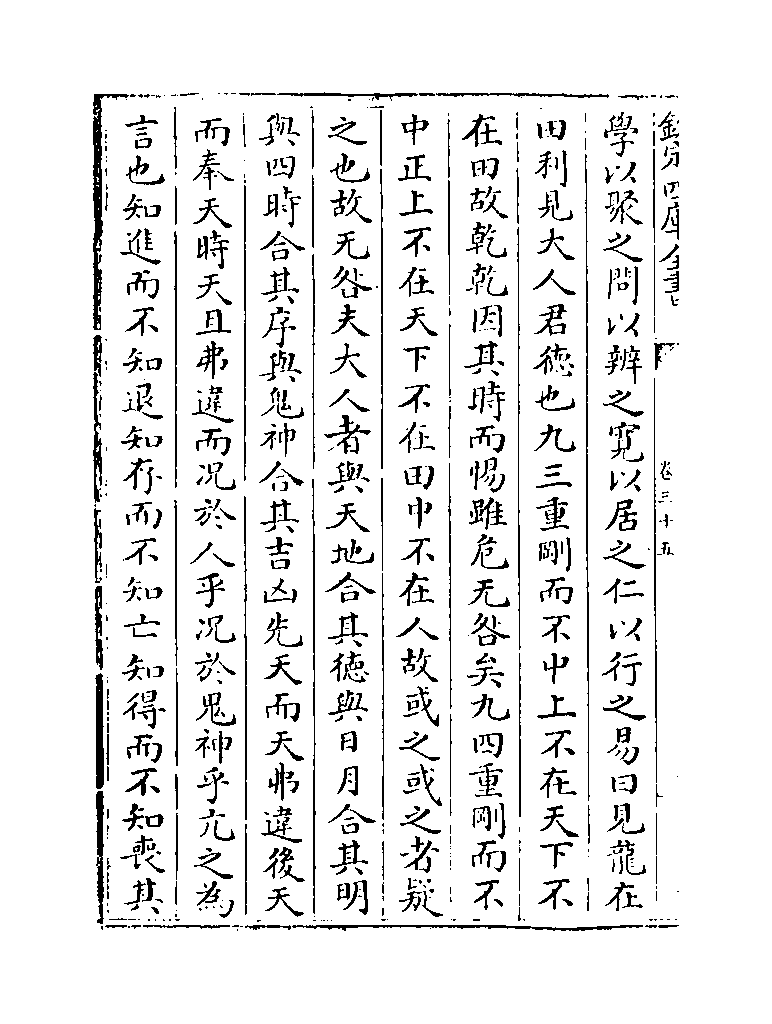 欽定四庫全書
卷三十五
學以聚之問以辨之寛以居之仁以行之易曰見龍在
田利見大人君徳也九三重剛而不中上不在天下不
在田故乾乾因其時而惕雖危无咎矣九四重剛而不
中正上不在天下不在田中不在人故或之或之者疑
之也故无咎夫大人者與天地合其徳與日月合其明
與四時合其序與鬼神合其吉凶先天而天弗違後天
而奉天時天且弗違而况於人乎况於鬼神乎亢之為
言也知進而不知退知存而不知亡知得而不知喪其